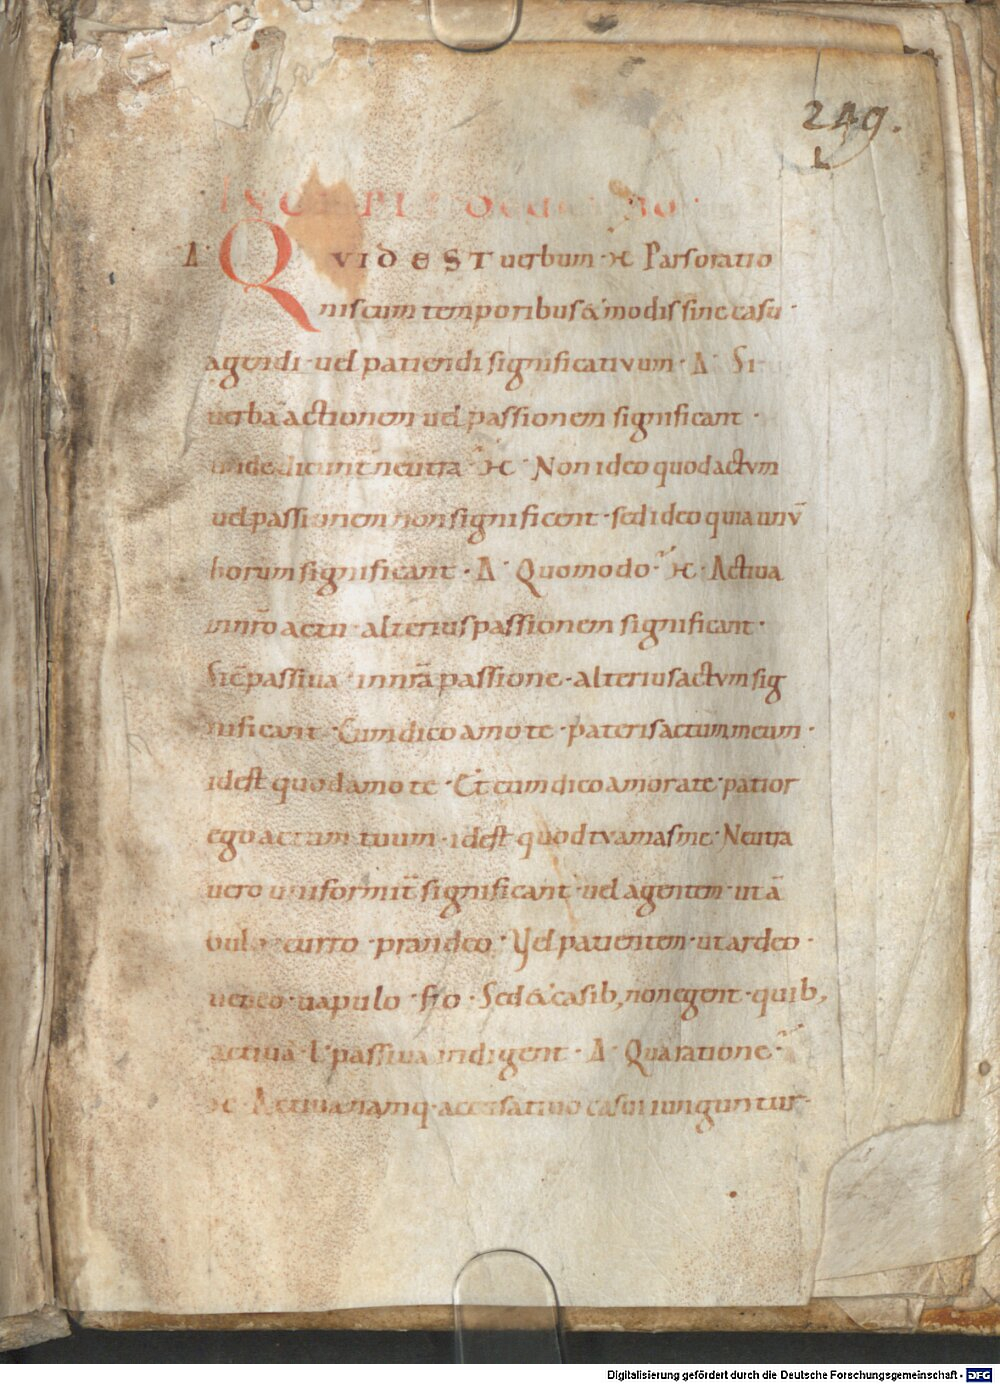 249.
Δ QVID EST uerbum · ϰ Pars oratio
nis cum temporibus & modis sine casu ·
agendi · uel patiendi significativum · Δ · Si
uerba actionem uel passionem significant ·
neutra · ϰ · Non ideo quod actvm
uel passionem non significent · sed ideo quia unv̄
horum significant · Δ · Quomodo · ϰ · Activa
in nr̄o actu · alterius passionem significant ·
Sic̄ passiua · in nr̄a passione · alterius actvm sig
nificant · Cum dico amo te · pateris actum meum ·
id est quod amo te · Et cum dico amor a te · patior
ego actum tuum · id est quod tv amas me · Neutra
uero uniformit̄ significant · uel agentem · ut ā
bulo · curro · prandeo · Vel patientem · ut ardeo ·
uapulo · fio · Sed & casib; non egent · quib;
actiua · l · passiua indigent · Δ · Qua ratione ·
ϰ · Actiua namq · accusatiuo casui iunguntur ·
Digitalisierung gefördert durch die Deutsche Forschungsgemeinschaft - DFG